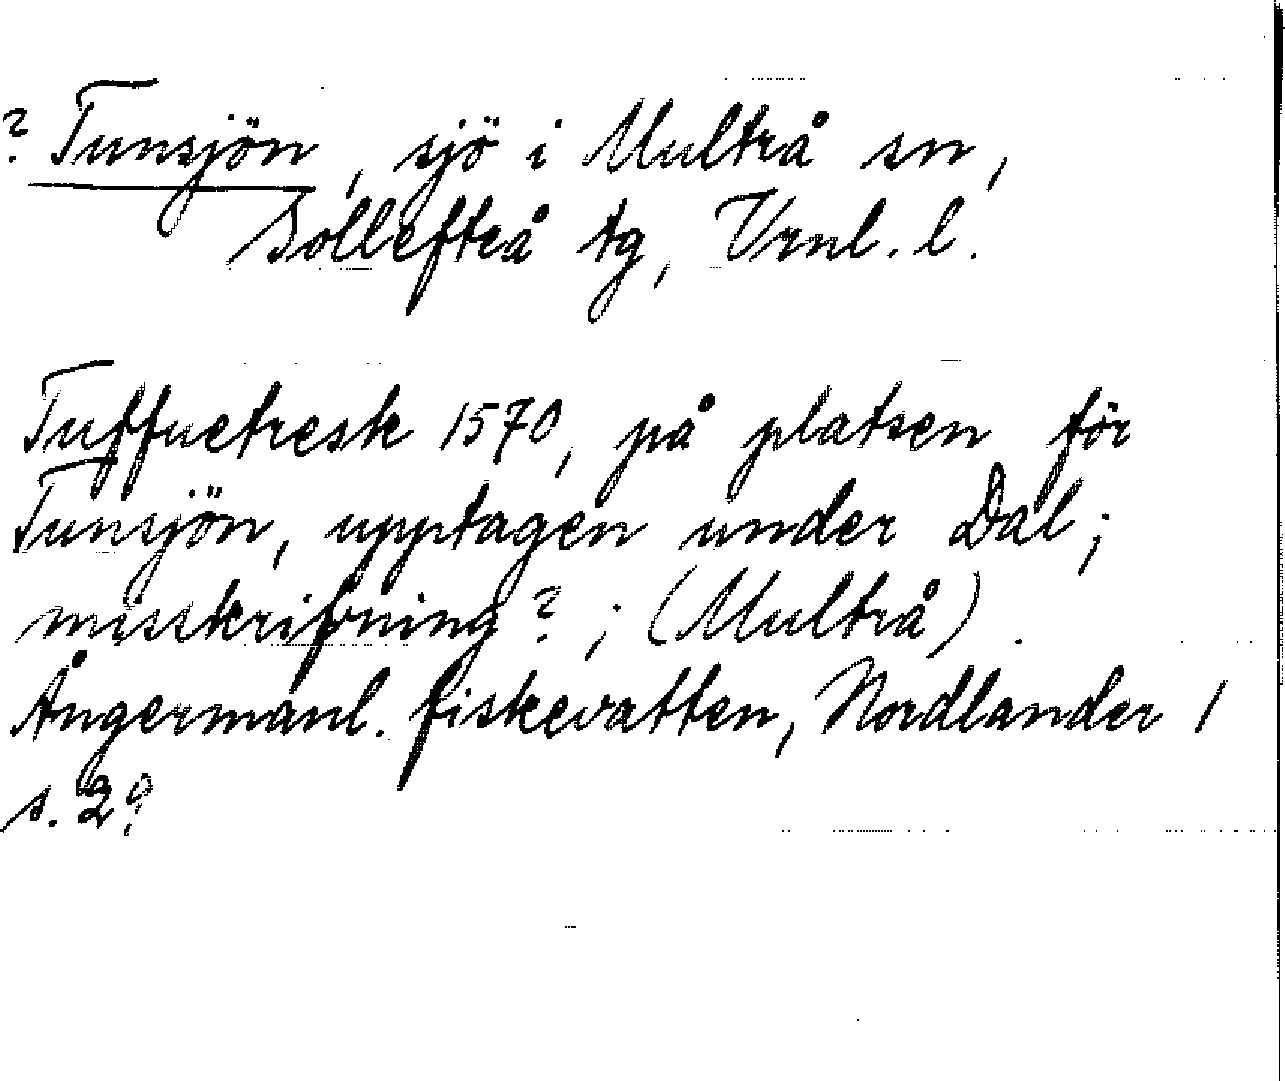 ? Tunsjön, sjö i Multrå sn,
Sollefteå tg, Vrnl. l.
Tuffuetresk 1570, på platsen för
Tunsjön, upptagen under Dal;
misskrifning?; (Multrå).
Ångermanl. fiskevatten, Nordlander 1
s. 29